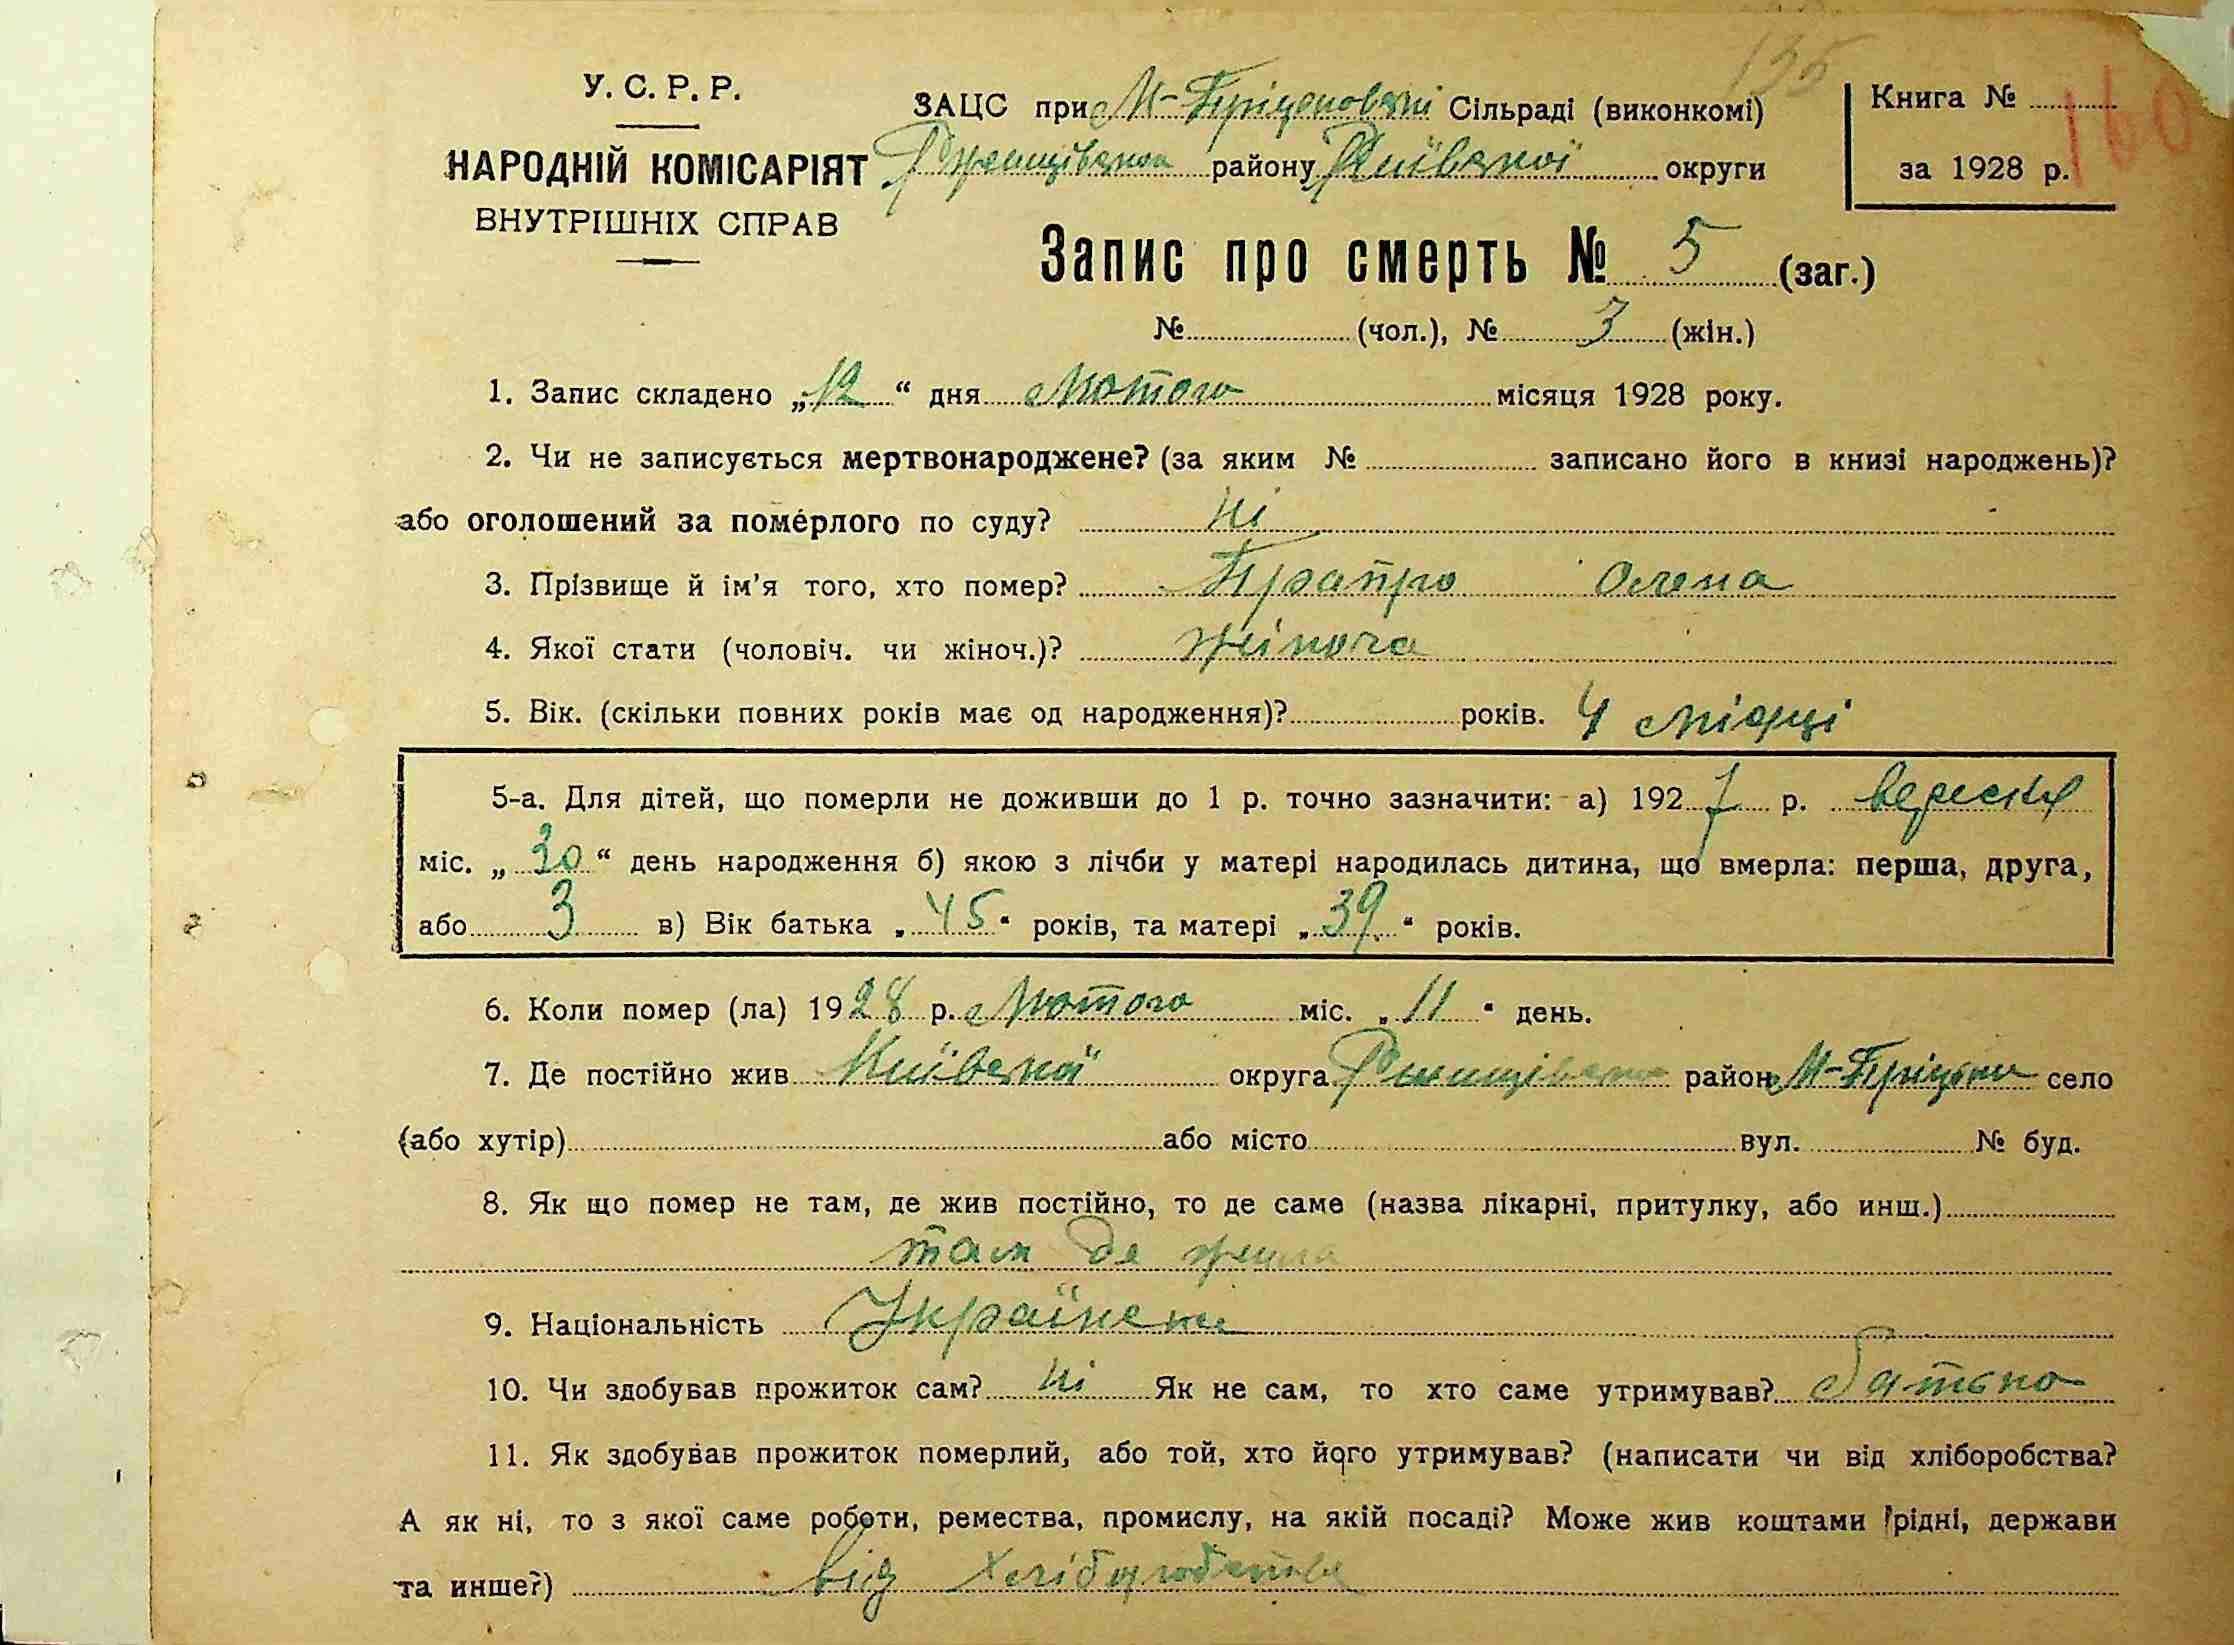 135
У. С. Р. Р.
НАРОДНІЙ КОМІСАРІЯТ
ВНУТРІШНІХ СПРАВ
ЗАЦС при М-Пріцьковскі Сільраді (виконкомі)
Ржищівська району Київської округи
Книга №
за 1928 р.
160
Запис про смерть № 5 (заг.)
№ (чол.), № 3 (жін.)
1. Запис складено „12“ дня Лютого місяця 1928 року.
2. Чи не записується мертвонароджене? (за яким № записано його в книзі народжень)?
або оголошений за померлого по суду? ні
3. Прізвище й ім'я того, хто помер? Олена
4. Якої стати (чоловіч. чи жіноч.)? жіноча
5. Вік. (скільки повних років має од народження)? років. 4 місяці
5-а. Для дітей, що померли не доживши до 1 р. точно зазначити: а) 1927 р. вересня
міс. „30“ день народження б) якою з лічби у матері народилась дитина, що вмерла: перша, друга,
або 3 в) Вік батька „45“ років, та матері „39“ років.
6. Коли помер (ла) 1928 р. Лютого міс. „11“ день.
7. Де постійно жив Київської округа Ржищівська район М-Пріцьки село
(або хутір) або місто вул. № буд.
8. Як що помер не там, де жив постійно, то де саме (назва лікарні, притулку, або инш.)
там де жила
9. Національність
10. Чи здобував прожиток сам? ні Як не сам, то хто саме утримував? батько
11. Як здобував прожиток померлий, або той, хто його утримував? (написати чи від хліборобства?
А як ні, то з якої саме роботи, ремества, промислу, на якій посаді? Може жив коштами рідні, держави
та инше?) від хліборобства